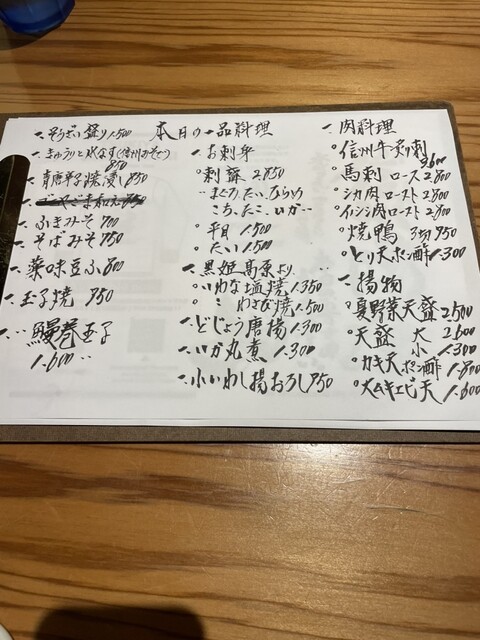 本日の一品料理
一、そうざい盛り 1.500
一、きゅうりと水なす(信州みそつき)
850
一、青唐辛子焼浸し 850
一、ごま和え 850
一、ふきみそ 700
一、そばみそ 750
一、薬味豆ふ 800
一、玉子焼 950
一、鰻巻玉子
1.600
一、お刺身
○刺盛 2.850
まぐろ、たい、ひらめ
こち、たこ、いか
○平目 1.500
○たい 1.500
一、黒姫高原より
○いわな塩焼 1.350
○〃 わさび焼 1.500
一、どじょう唐揚 1.300
一、いか丸煮 1.300
一、小いわし揚おろし 950
一、肉料理
○信州牛タタキ刺
2600
○馬刺 ロース 2.800
○シカ肉ロースト 2.800
○イノシシ肉ロースト 2.800
○焼鴨 3切 950
○とり天ポン酢 1.300
一、揚物
○夏野菜天盛 2.500
○天盛 大 2.600
小 1.300
○カキ天ポン酢 1.800
○大ムキエビ天 1.600